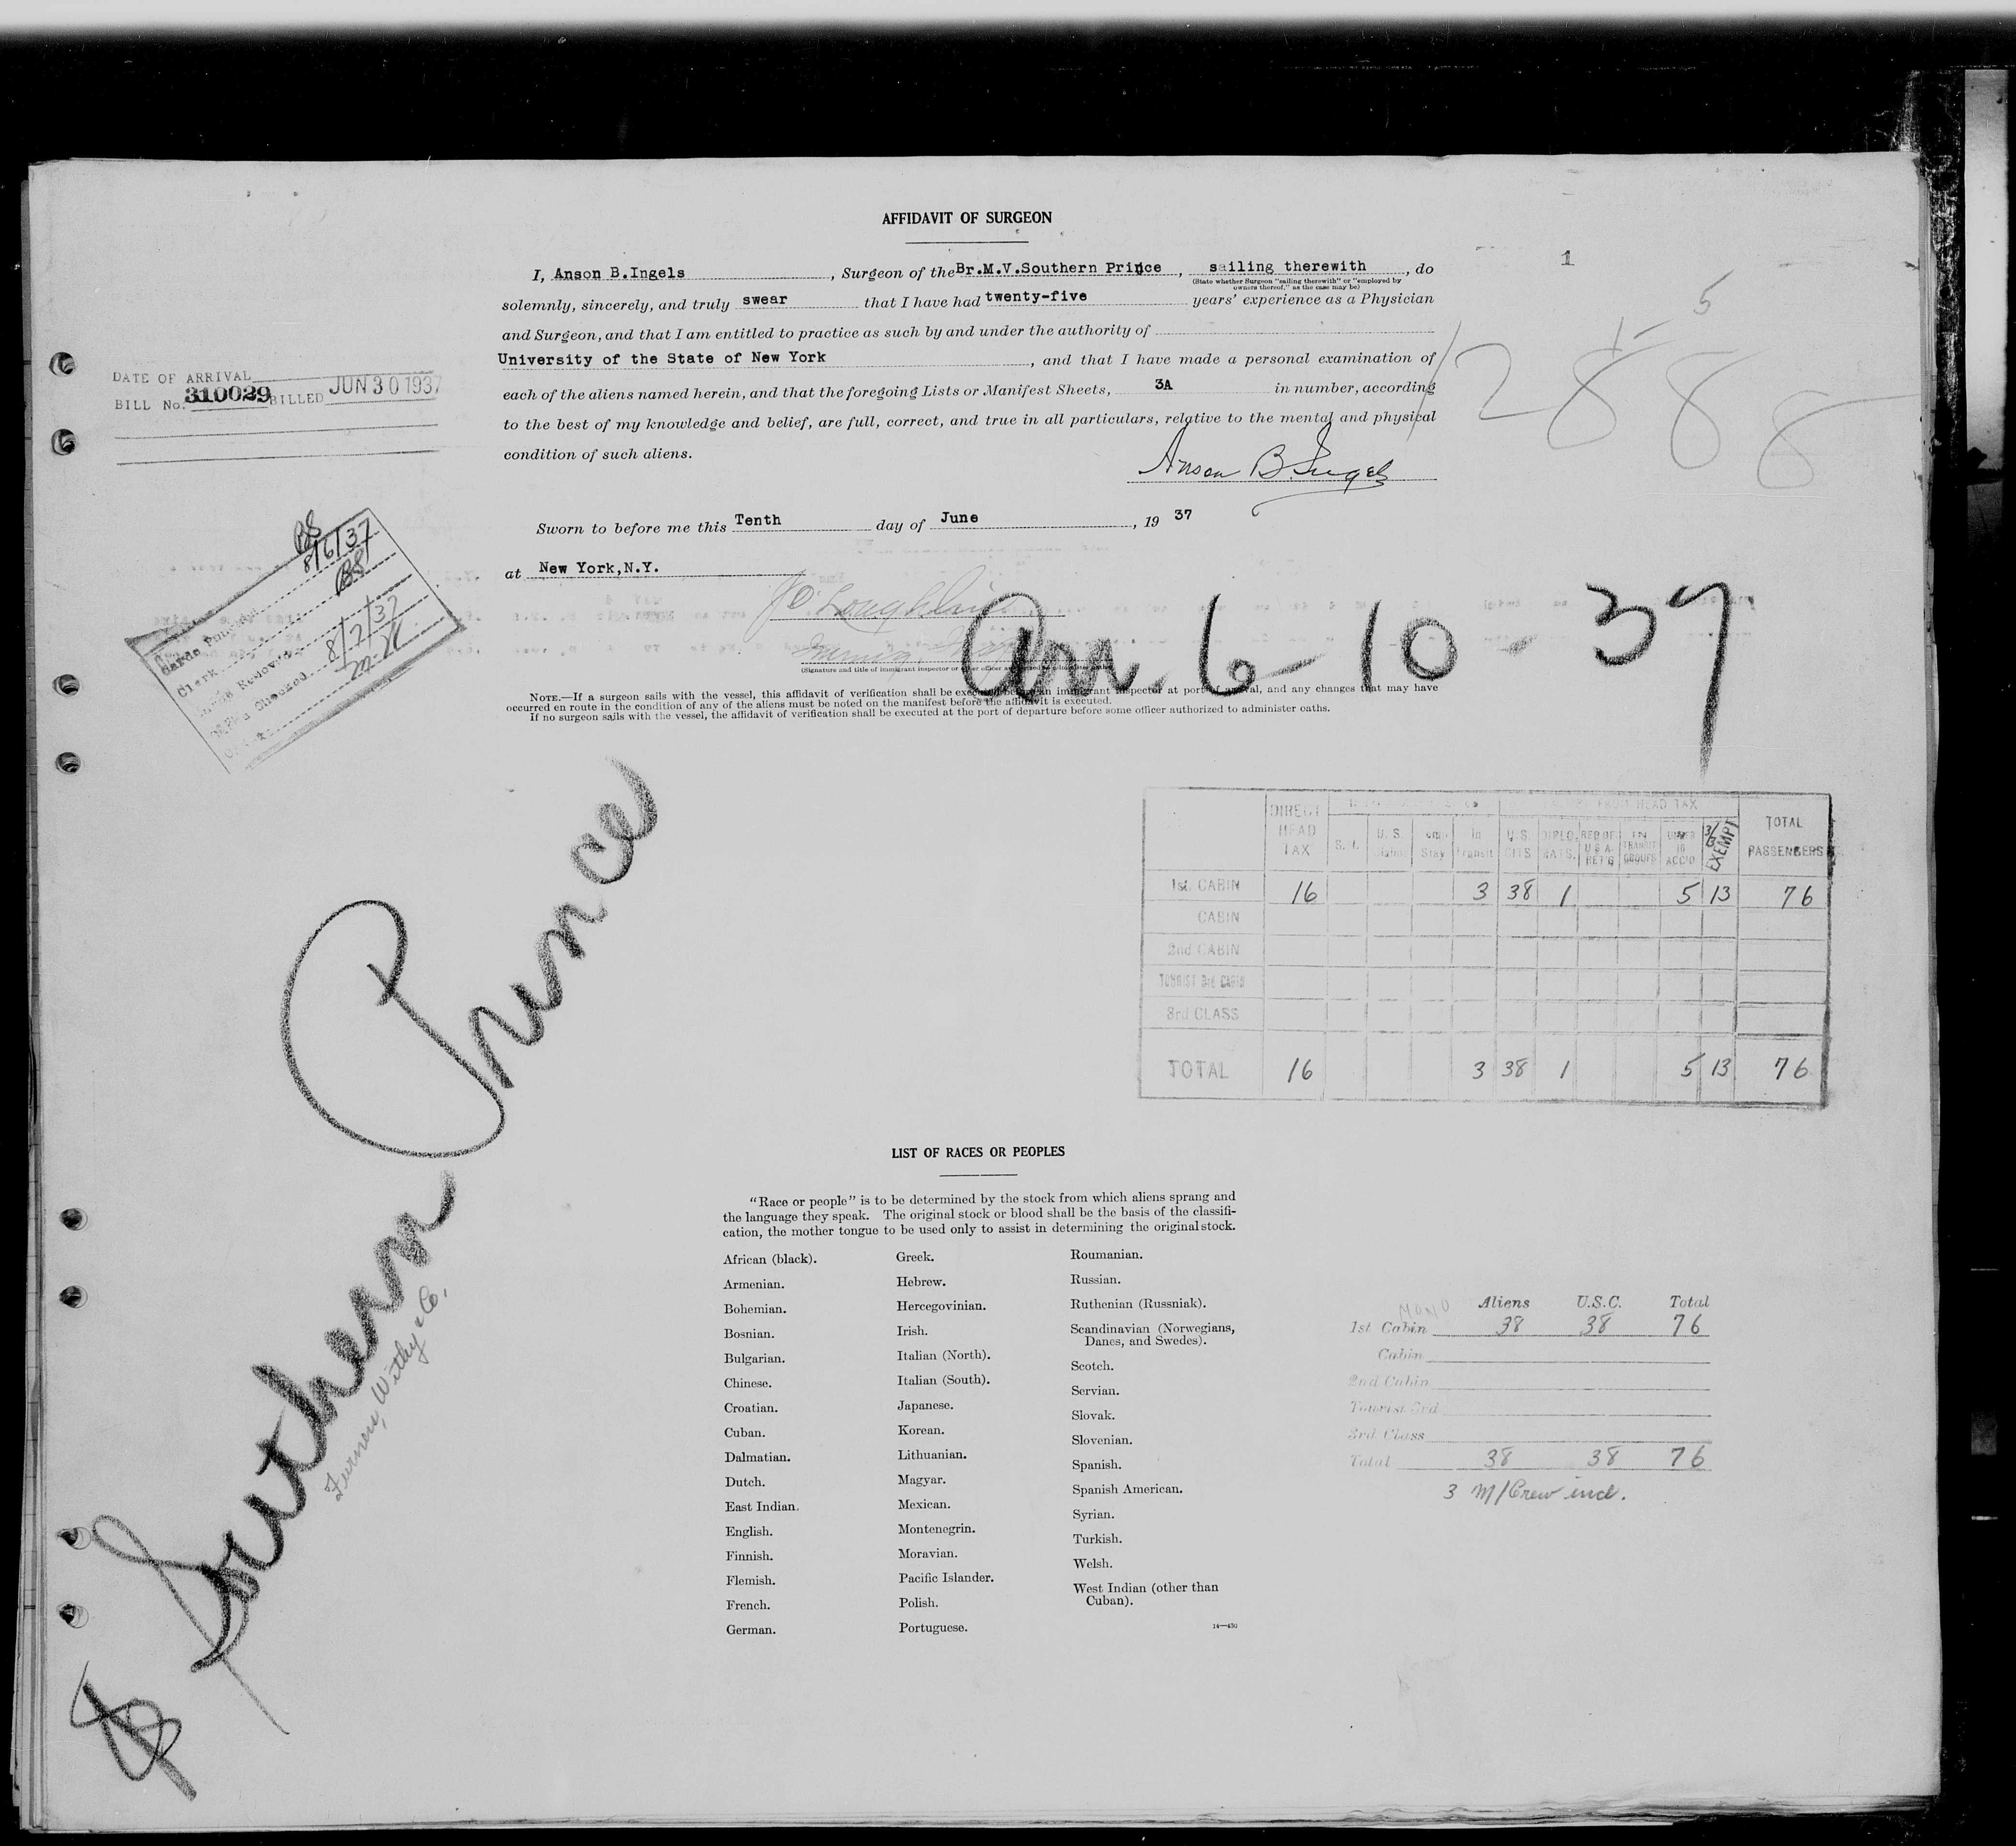 AFFIDAVIT OF SURGEON
1
I, Anson B.Ingels, Surgeon of the Br.M.V.Southern Prince, sailing therewith, do
(State whether Surgeon "sailing therewith" or "employed by
owners thereof," as the case may be)
solemnly, sincerely, and truly swear that I have had twenty-five years' experience as a Physician
and Surgeon, and that I am entitled to practice as such by and under the authority of
University of the State of New York, and that I have made a personal examination of
each of the aliens named herein, and that the foregoing Lists or Manifest Sheets, 3A in number, according
to the best of my knowledge and belief, are full, correct, and true in all particulars, relative to the mental and physical
condition of such aliens.
Anson B. Ingels
5
DATE OF ARRIVAL
BILL No. 310029 BILLED JUN 30 1937
Sworn to before me this Tenth day of June, 19 37
at New York,N.Y.
BS
8/6/37
BS
Clerk
8/7/37
Arr. 6-10-37
(Signature and title of immigrant inspector or other officer
NOTE.—If a surgeon sails with the vessel, this affidavit of verification shall be executed before an immigrant inspector at port of arrival, and any changes that may have
occurred en route in the condition of any of the aliens must be noted on the manifest before the affidavit is executed.
If no surgeon sails with the vessel, the affidavit of verification shall be executed at the port of departure before some officer authorized to administer oaths.
Southern Prince
Furness, Withy & Co.
DIRECT HEAD TAX
FROM HEAD TAX
TOTAL PASSENGERS
S. I. U. S. Stay In Transit U.S. CITS DIPLO. MATS. RES OF U S A. RET'G IN TRANSIT GROUPS UNDER 16 ACC'D EXEMPT
1st. CABIN 16 3 38 1 5 13 76
CABIN
2nd CABIN
TOURIST 3rd CABIN
3rd CLASS
TOTAL 16 3 38 1 5 13 76
LIST OF RACES OR PEOPLES
"Race or people" is to be determined by the stock from which aliens sprang and
the language they speak. The original stock or blood shall be the basis of the classifi-
cation, the mother tongue to be used only to assist in determining the original stock.
African (black).
Armenian.
Bohemian.
Bosnian.
Bulgarian.
Chinese.
Croatian.
Cuban.
Dalmatian.
Dutch.
East Indian.
English.
Finnish.
Flemish.
French.
German.
Greek.
Hebrew.
Hercegovinian.
Irish.
Italian (North).
Italian (South).
Japanese.
Korean.
Lithuanian.
Magyar.
Mexican.
Montenegrin.
Moravian.
Pacific Islander.
Polish.
Portuguese.
Roumanian.
Russian.
Ruthenian (Russniak).
Scandinavian (Norwegians,
Danes, and Swedes).
Scotch.
Servian.
Slovak.
Slovenian.
Spanish.
Spanish American.
Syrian.
Turkish.
Welsh.
West Indian (other than
Cuban).
14—430
Aliens U.S.C. Total
1st Cabin 38 38 76
Cabin
2nd Cabin
Tourist 3rd
3rd Class
Total 38 38 76
3 M/Crew incl.